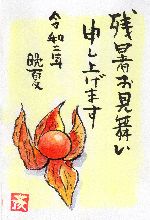 残暑お見舞い
申し上げます
令和二年
晩夏